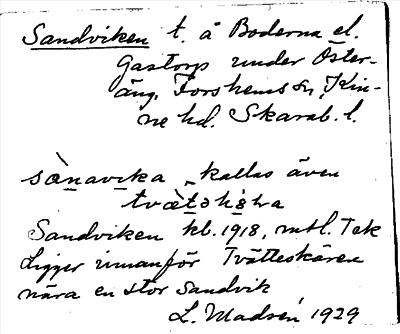 Sandviken t. å Boderna el.
Gastorp under Öster-
äng, Forshems sn, Kin-
ne hd. Skarab. l.
sànavika, kallas även
Sandviken kl. 1918, mtl. Tek
Ligger innanför Tvätteskären
nära en stor Sandvik
L. Madsén 1929